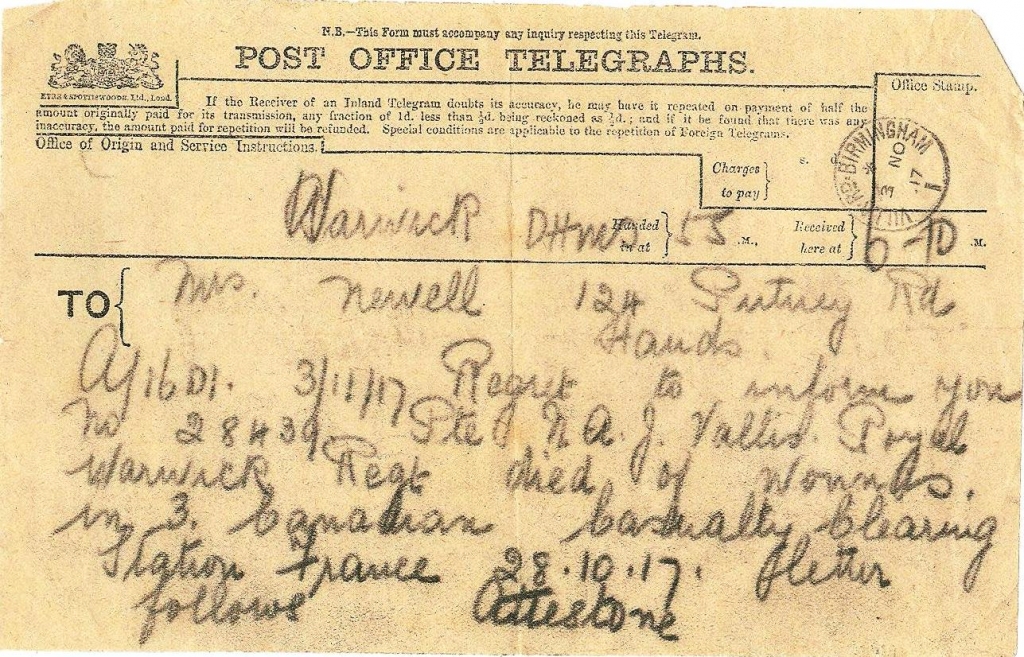 N.B.—This Form must accompany any inquiry respecting this Telegram.
POST OFFICE TELEGRAPHS.
EYRE & SPOTTISWOODE, Ltd., Lond.
If the Receiver of an Inland Telegram doubts its accuracy, he may have it repeated on payment of half the
amount originally paid for its transmission, any fraction of 1d. less than ½d. being reckoned as ½d.; and if it be found that there was any
inaccuracy, the amount paid for repetition will be refunded. Special conditions are applicable to the repetition of Foreign Telegrams.
Office of Origin and Service Instructions.
Office Stamp.
BIRMINGHAM
NO
17
Charges
to pay
s. d.
Warwick
Handed
in at
55
.M.,
Received
here at
.M.
TO
Mrs. Newell 124 Putney Rd
Hands.
3/11/17 Regret to inform you
No 28439 Pte A. J. Royal
Warwick Regt died of Wounds.
in 3. Canadian Casualty Clearing
Station France 28.10.17. letter
follows